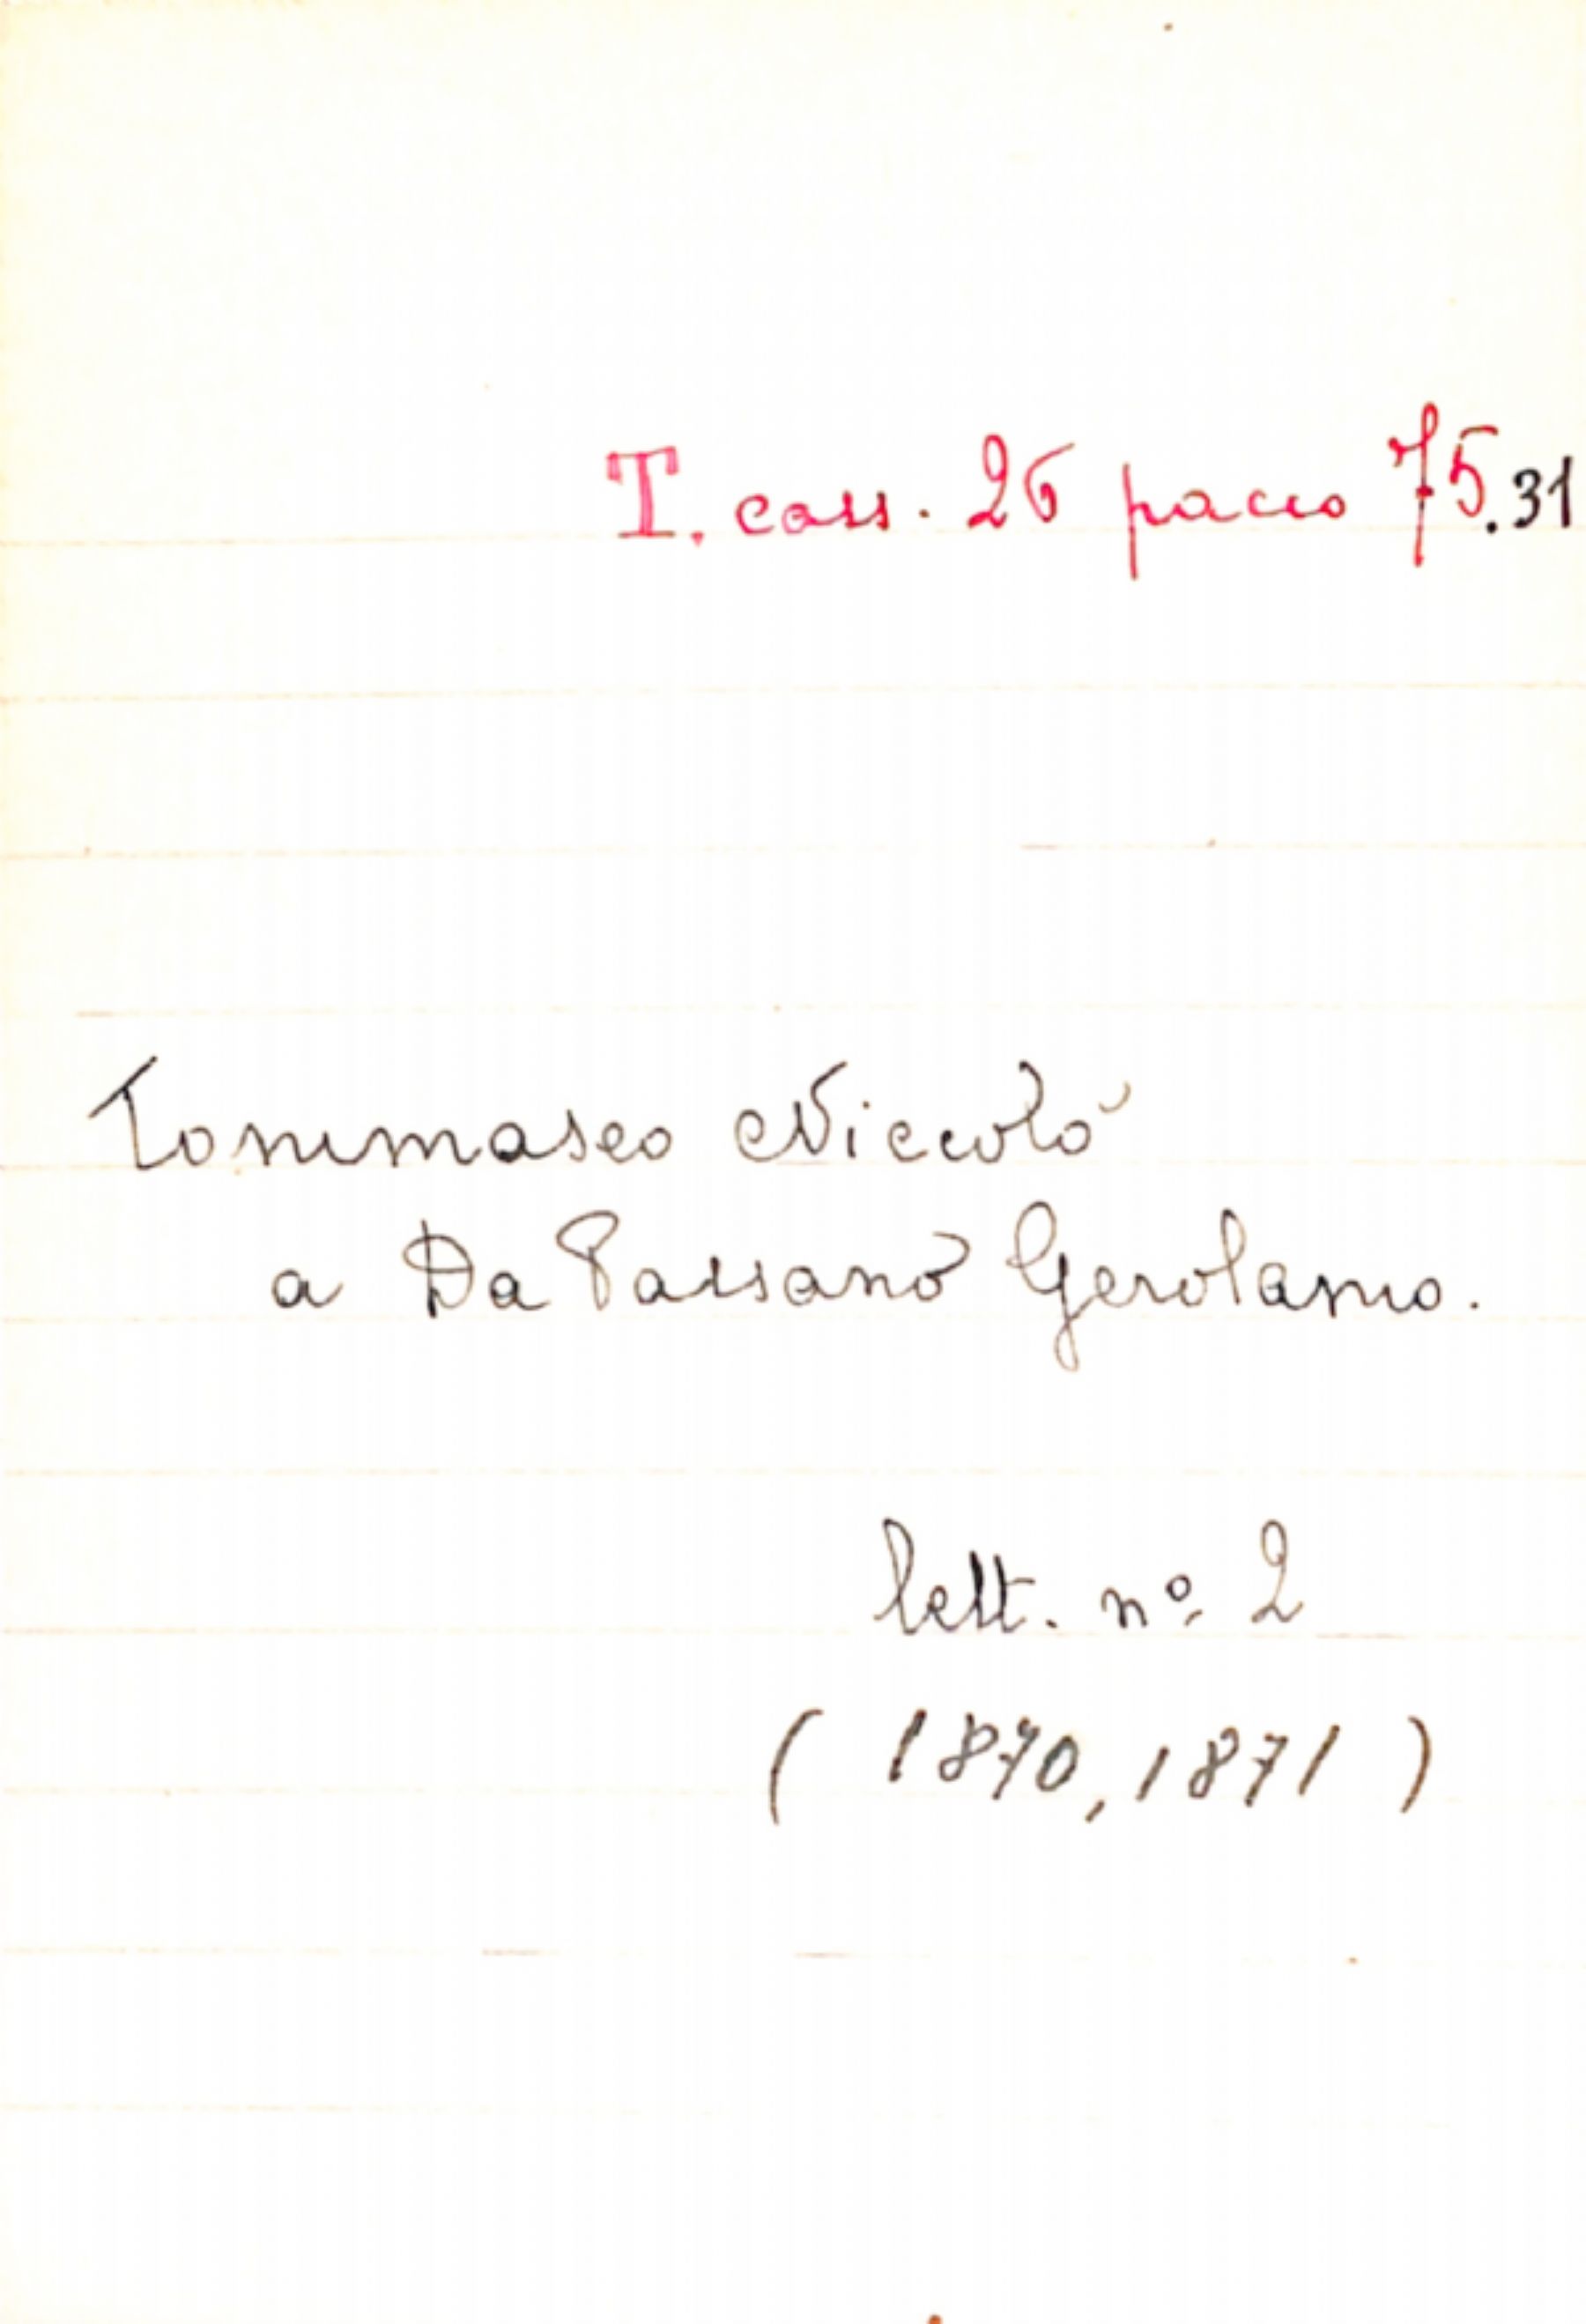 T. cass. 26 pacco 75.31
Tommaseo Niccolò
a Da Passano Gerolamo.
lett. nº 2
( 1870, 1871 )